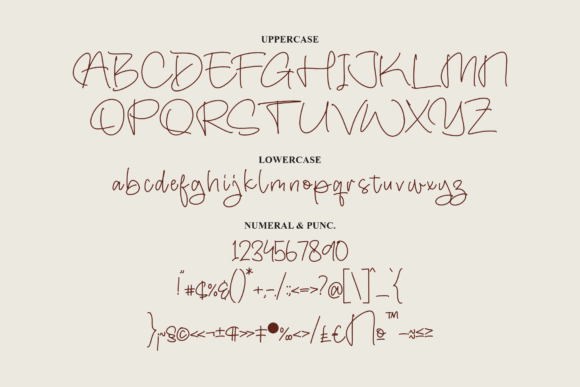 UPPERCASE
ABCDEFGHIJKLMN
OPQRSTUVWXYZ
LOWERCASE
abcdefghijklmnopqrstuvwxyz
NUMERAL & PUNC.
1234567890
!"#₵%&()*+,-./:;<=>?@[\]^_`{
}¡~§©«¬±¶»‡●‰<>/£€∏º™−≈≤≥